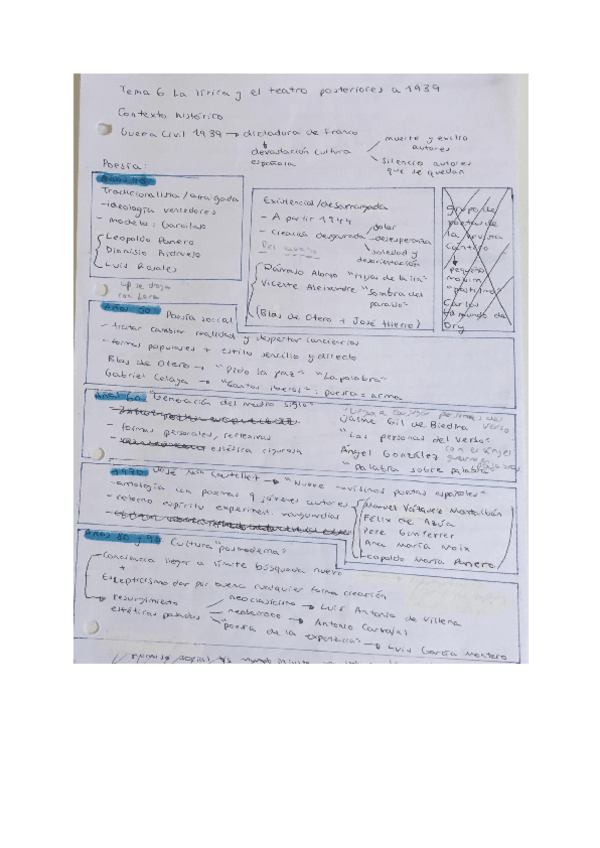 Tema 6. La lírica y el teatro posteriores a 1939
Contexto histórico
Guerra Civil 1939 → dictadura de Franco
devastación cultura española
muerte y exilio autores
silencio autores que se quedan
Poesía:
Tradicionalista / arraigada
- ideología vencedores
- modelo: Garcilaso
Leopoldo Panero
Dionisio Ridruejo
Luis Rosales
Existencial / desarraigada
- A partir 1944
- Creación desgarrada
dolor
desesperanza
soledad y
desorientación
Dámaso Alonso "Hijos de la ira"
Vicente Aleixandre "Sombra del
paraíso"
(Blas de Otero + José Hierro)
Grupo de
poetas de
la revista
Cántico
pequeño
Carlos
Edmundo de
Ory
Años 50 Poesía social
- tratar cambiar realidad y despertar conciencias
- formas populares + estilo sencillo y directo
Blas de Otero → "Pido la paz" "La palabra"
Gabriel Celaya → "Cantos íberos": poesía = arma
Años 60 "Generación del medio siglo"
- formas personales, reflexivas
estética rigurosa
Jaime Gil de Biedma
"Las personas del verbo"
Ángel González
"Palabra sobre palabra"
1970 José Mª Castellet → "Nueve novísimos poetas españoles"
- antología con poemas 9 jóvenes autores
- retorno espíritu experiment. vanguardias
Manuel Vázquez Montalbán
Félix de Azúa
Pere Gimferrer
Ana María Moix
Leopoldo María Panero
Años 80 y 90 Cultura "posmoderna"
Conciencia llegar a límite búsqueda nuevo
+
Escepticismo dar por buena cualquier forma creación
resurgimiento
estéticas pasadas
neoclasicismo → Luis Antonio de Villena
neobarroco → Antonio Carvajal
"poesía de la experiencia" → Luis García Montero